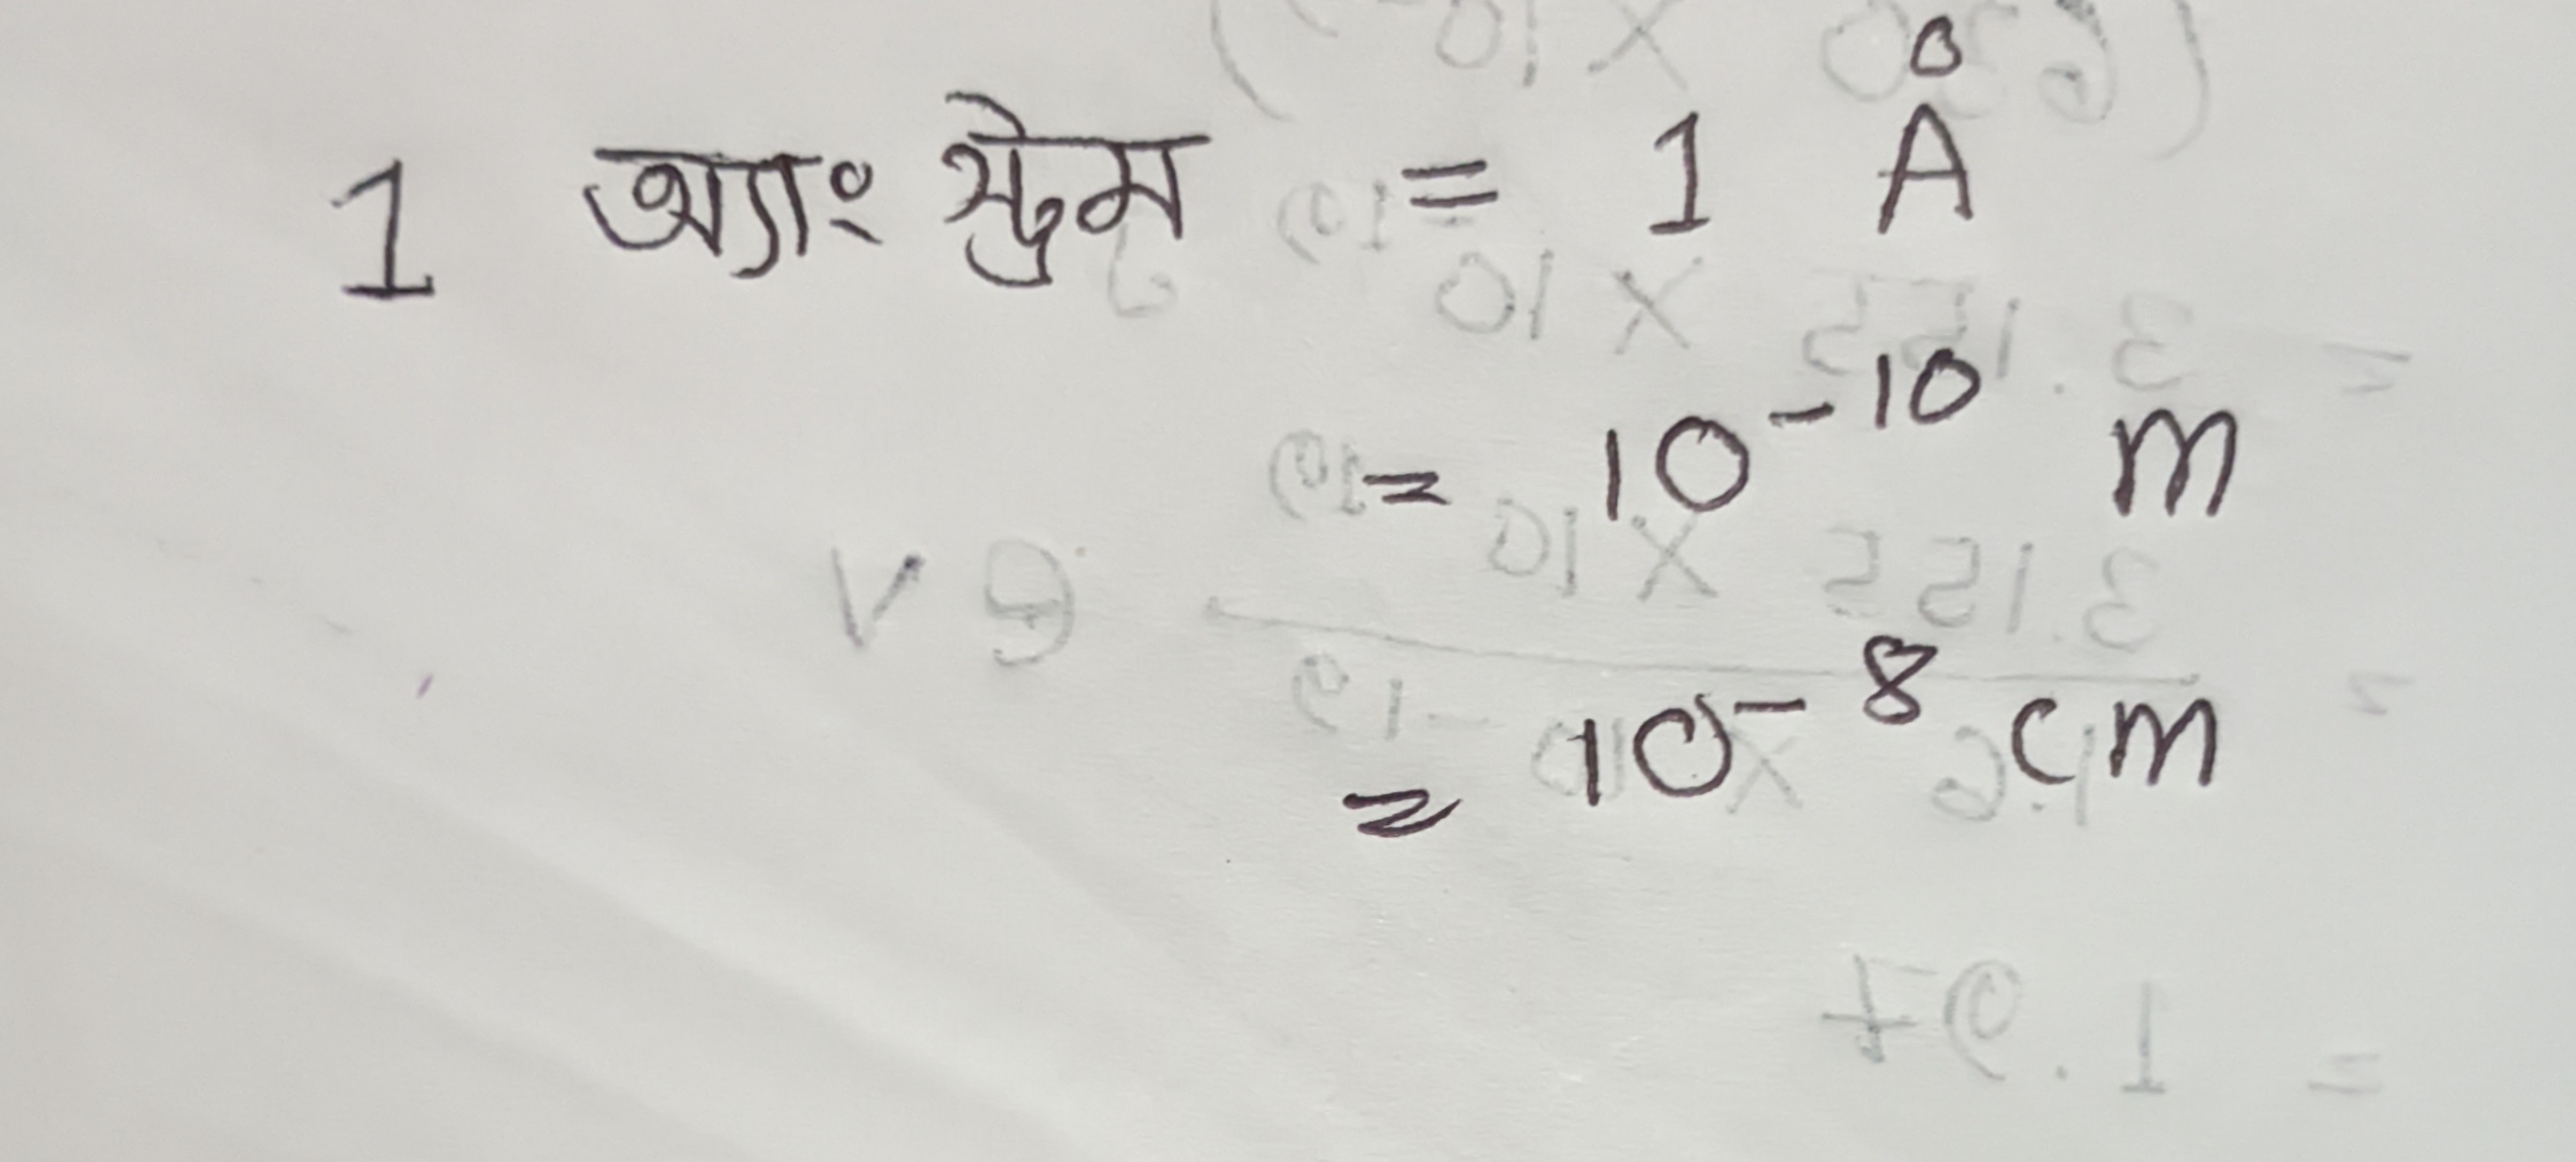 1 অ্যাংস্ট্রেম = 1 Å
= 10⁻¹⁰ m
= 10⁻⁸ cm